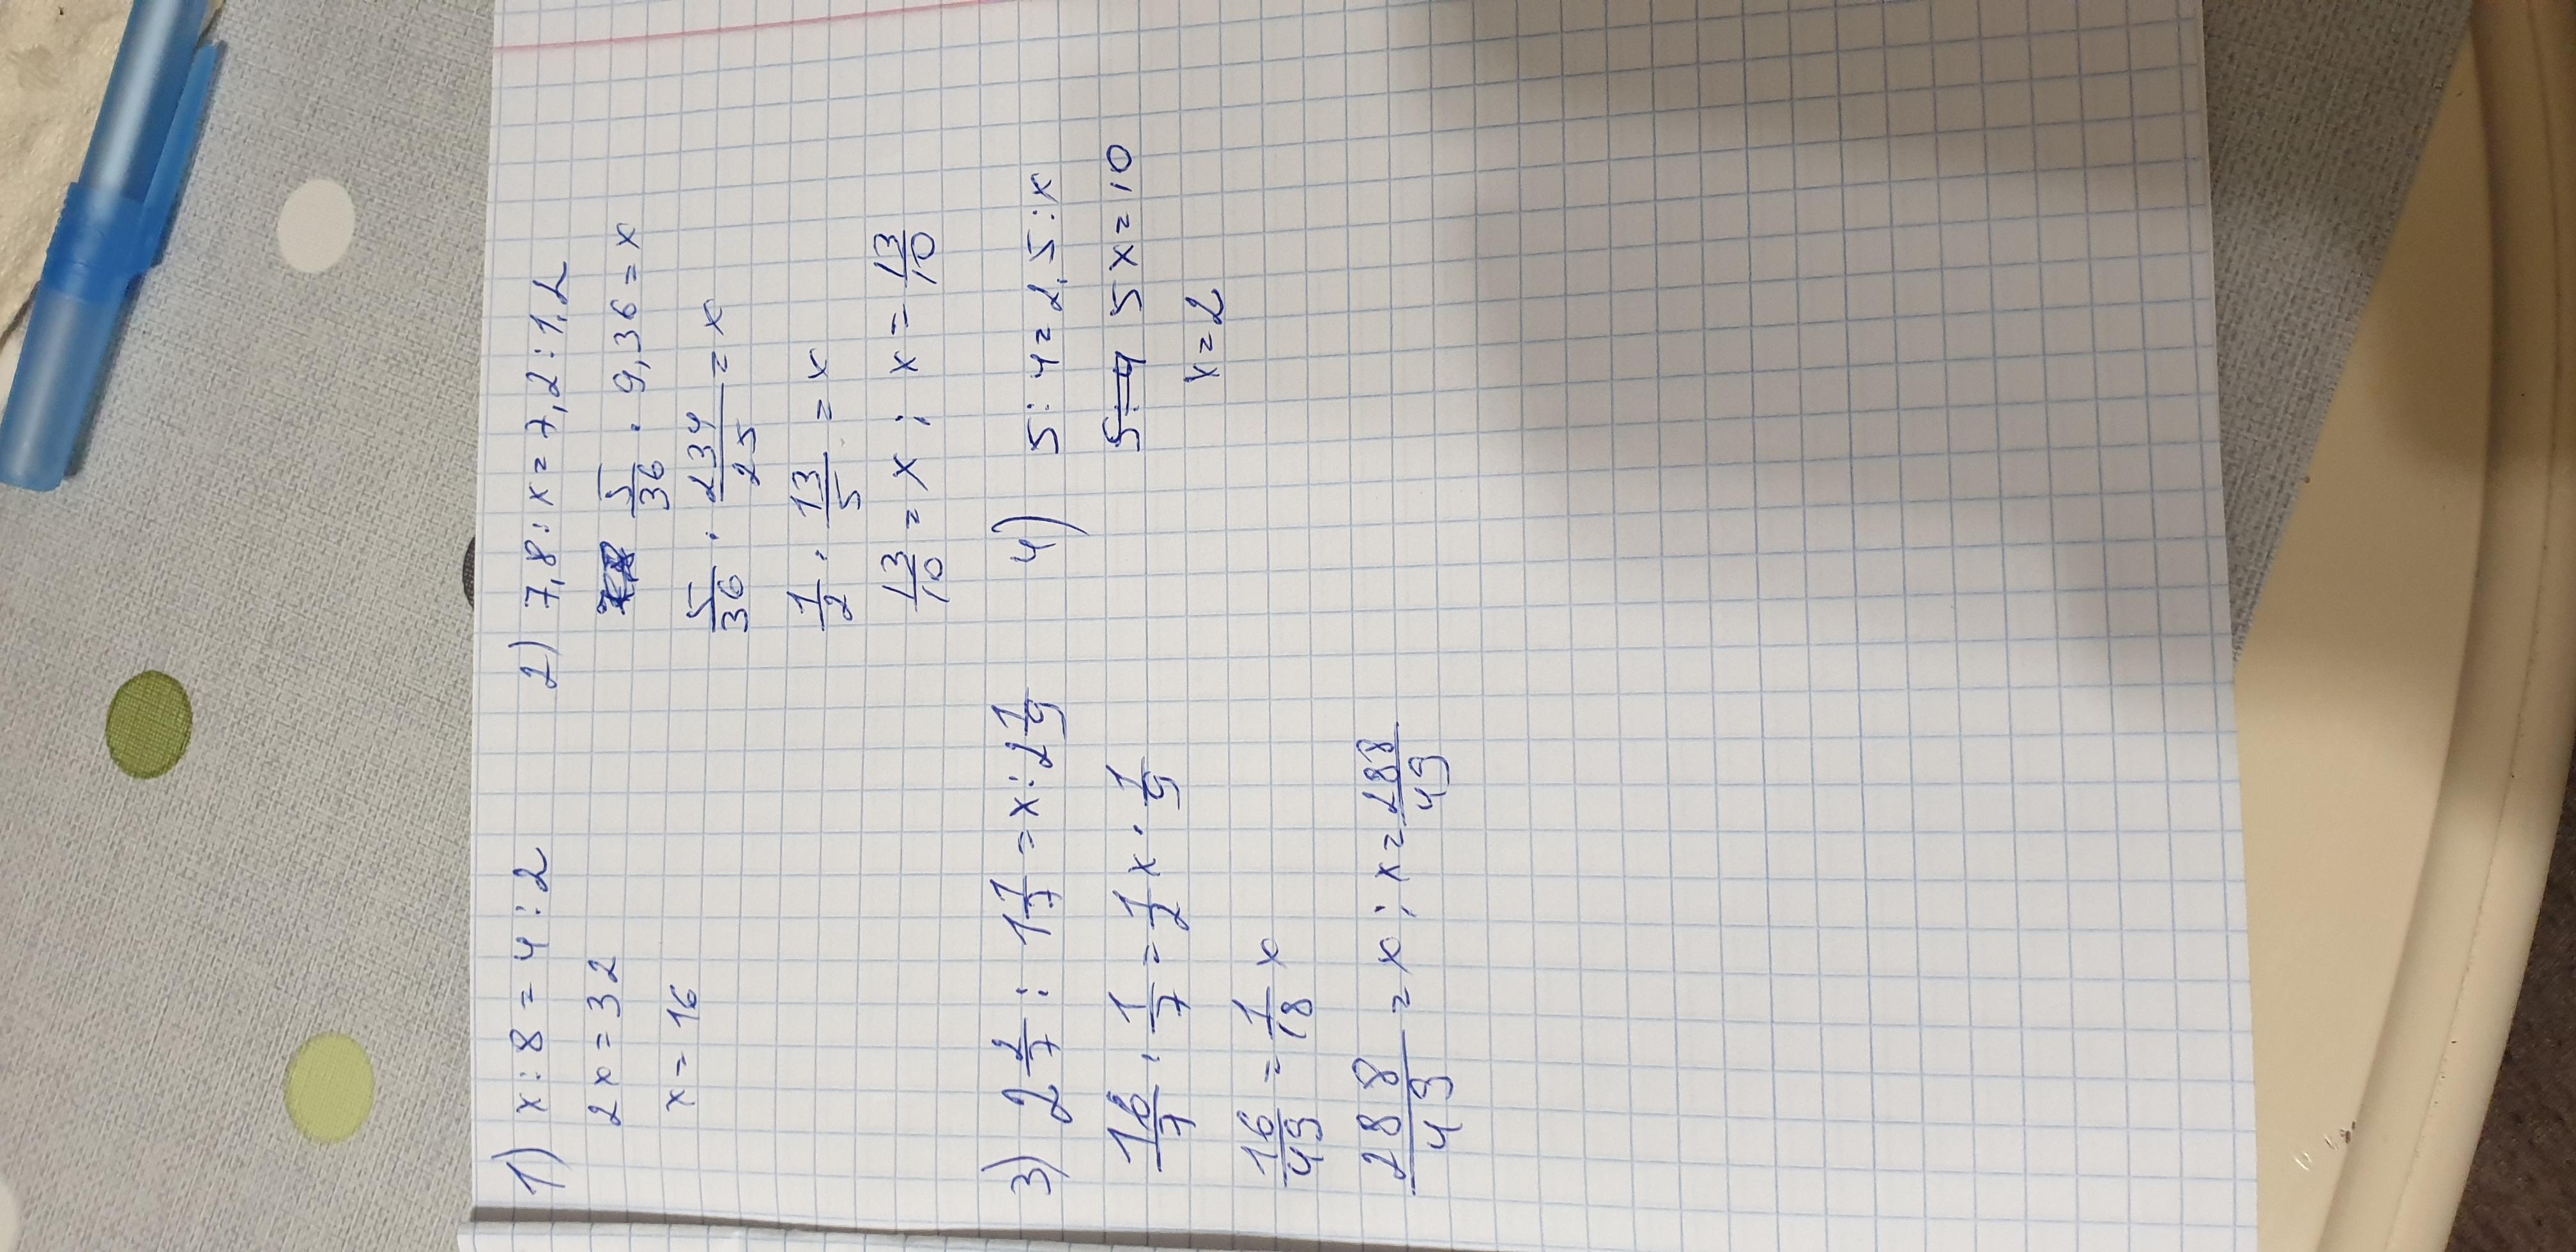 1) x : 8 = 4 : 2
2x = 32
x = 16
2) 7,8 : x = 7,2 : 1,2
5/36 · 9,36 = x
5/36 · 234/25 = x
1/2 · 13/5 = x
13/10 = x ; x = 13/10
3) 2 2/7 : 1 1/7 = x : 2 1/9
16/7 · 1/7 = 1/2 x · 1/9
16/49 = 1/18 x
288/49 = x ; x = 288/49
4) 5 : 4 = 2,5 : x
5 : 4 5x = 10
x = 2